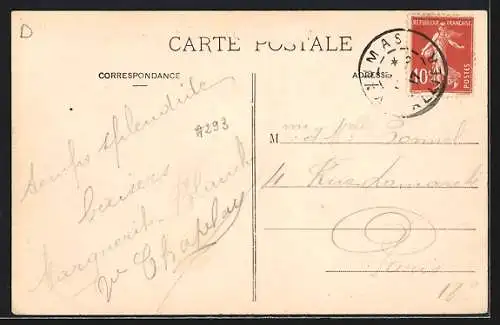 D
CARTE POSTALE
CORRESPONDANCE
ADRESSE
REPUBLIQUE FRANÇAISE
10
POSTES
MAS
#293
temps splendide
baisers
Marguerite Blanch
M
4 Rue Lamarck
Paris
18e